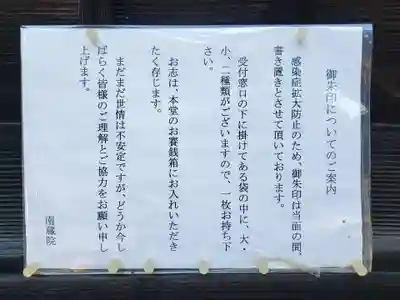 御朱印についてのご案内
感染症拡大防止のため、御朱印は当面の間、
書き置きとさせて頂いております。
受付窓口の下に掛けてある袋の中に、大・
小、二種類がございますので、一枚お持ち下
さい。
お志は、本堂のお賽銭箱にお入れいただき
たく存じます。
まだまだ世情は不安定ですが、どうか今し
ばらく皆様のご理解とご協力をお願い申し
上げます。
南蔵院